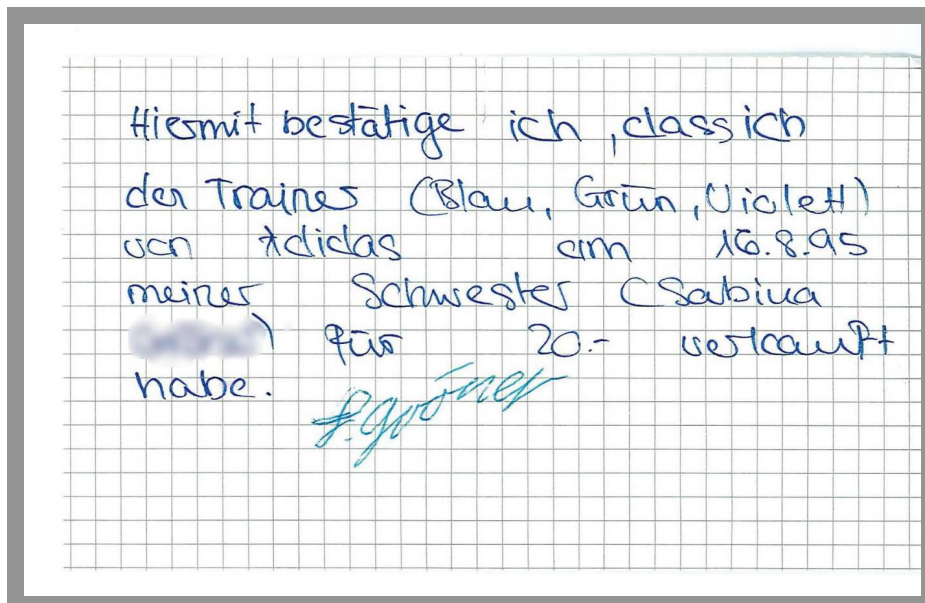 Hiermit bestätige ich, dass ich
den Trainer (Blau, Grün, Violett)
von Adidas am 16.8.95
meiner Schwester (Sabina
) für 20.- verkauft
habe.